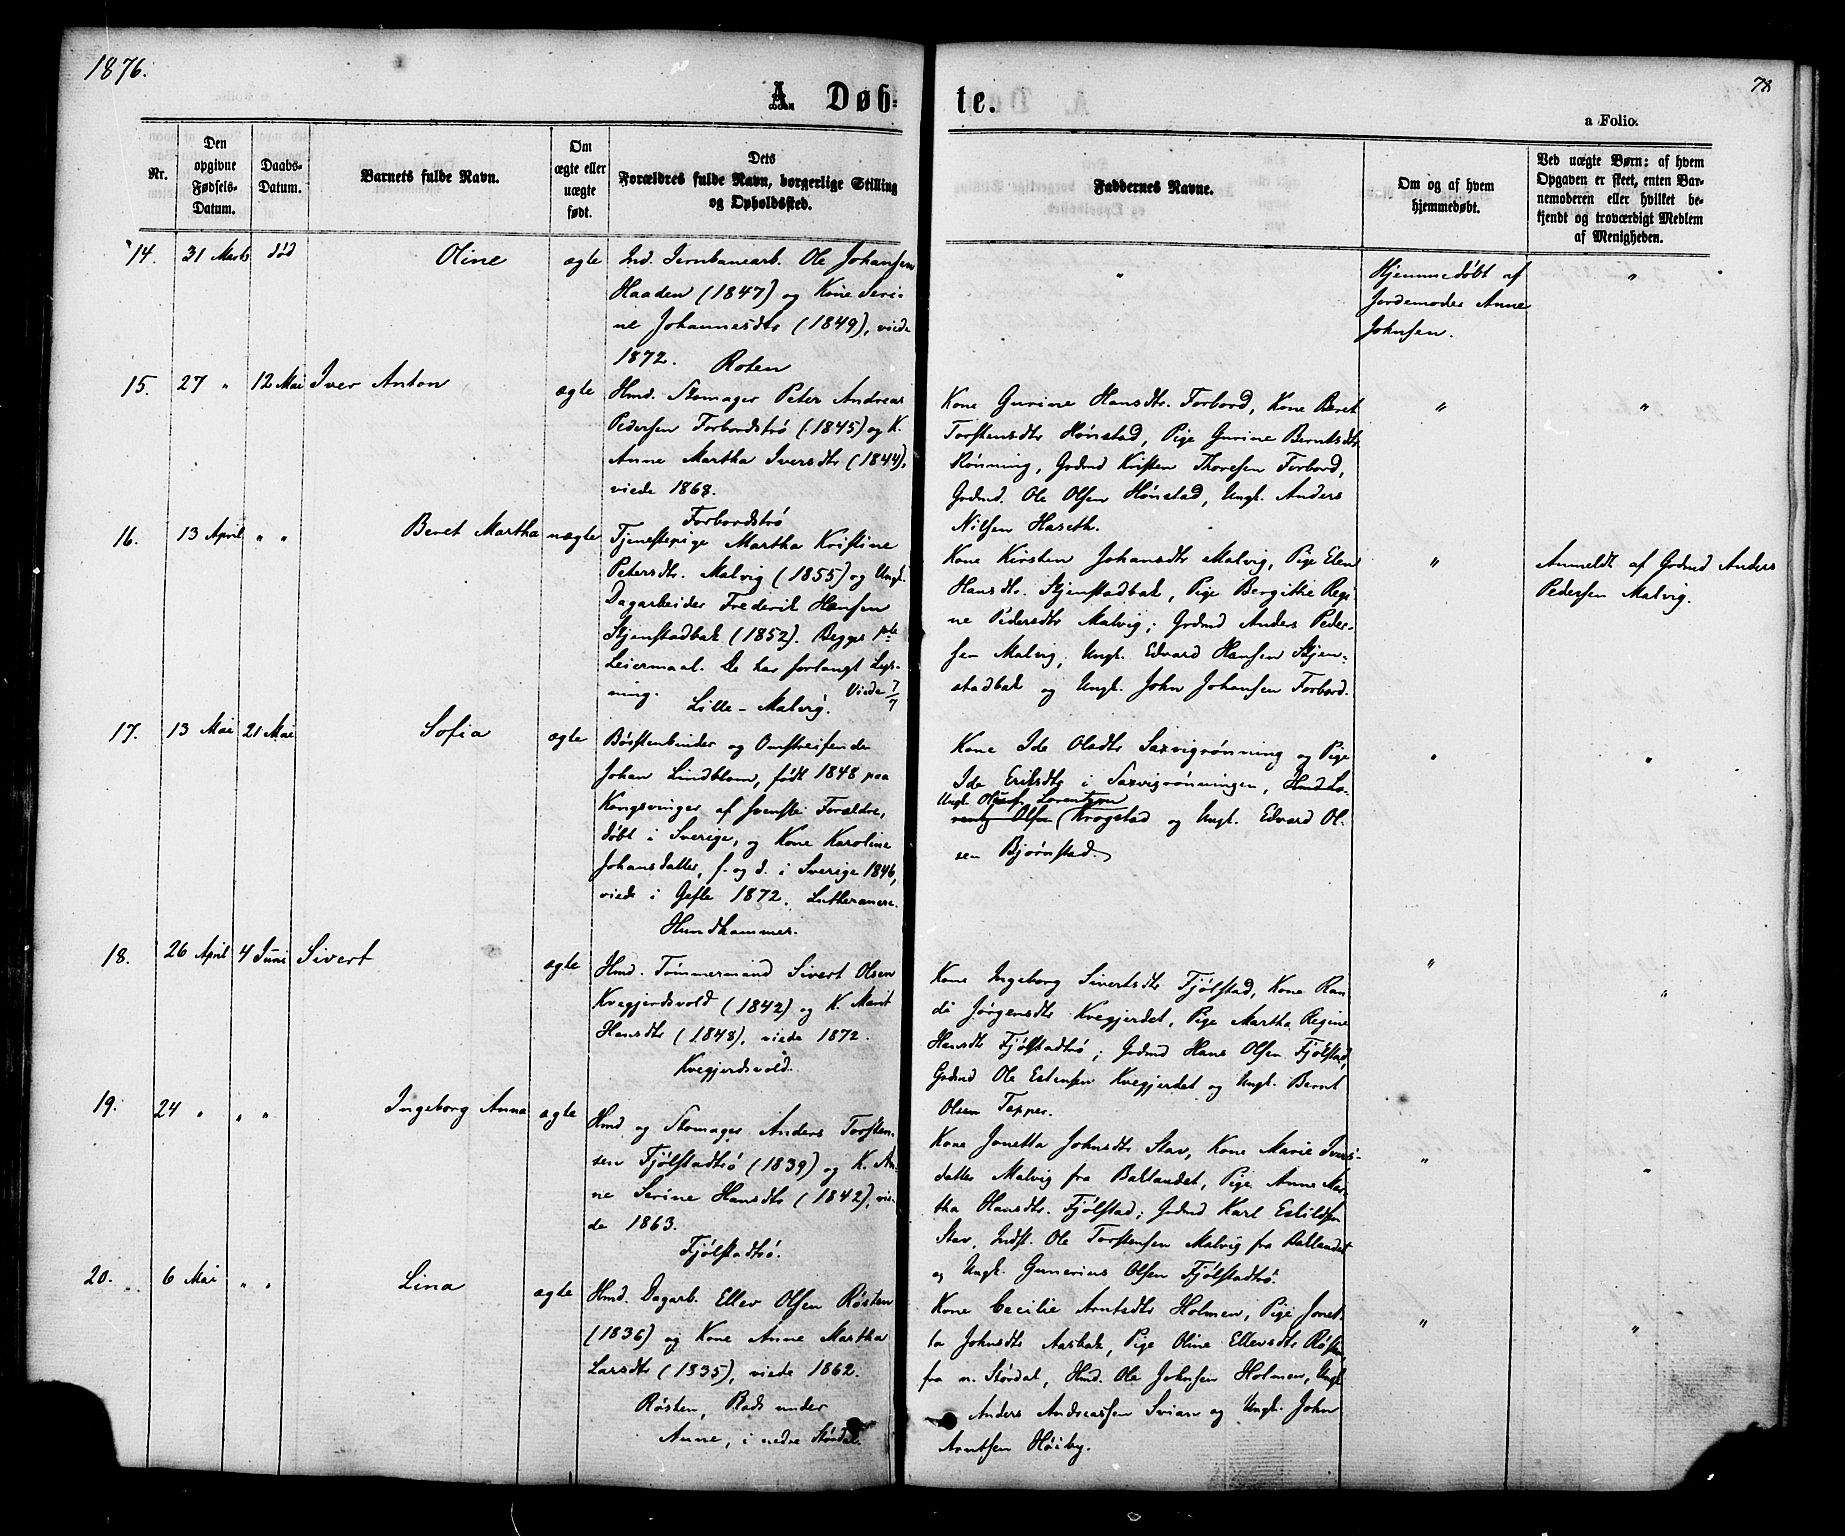 1876.
78
A. Døb-
te.
a Folio.
Nr.
Den
opgivne
Fødsels-
Datum.
Daabs-
Datum.
Barnets fulde Navn.
Om
ægte eller
uægte
født.
Dets
Forældres fulde Navn, borgerlige Stilling
og Opholdssted.
Faddernes Navne.
Om og af hvem
hjemmedøbt.
Ved uægte Børn: af hvem
Opgaven er skeet, enten Bar-
nemoderen eller hvilket be-
kjendt og troværdigt Medlem
af Menigheden.
14. 31 Marts død Oline ægte
Ind. Jernbanearb. Ole Johansen
Haaden (1847) og Kone Seri-
ne Johannesdtr (1849), viede
1872. Roten
"
Hjemmedøbt af
Jordemoder Anne
Johnsen.
"
15. 27 " 12 Mai Iver Anton ægte
Hmd. Skomager Peter Andreas
Pedersen Forbordstrø (1845) og K.
Anne Martha Iversdtr (1844),
viede 1868.
Forbordstrø
Kone Gurine Hansdtr. Forbord, Kone Beret
Torstensdtr Hønstad, Pige Gurine Berntsdtr
Rønning, Grdmd Kristen Thoresen Forbord,
Grdmd. Ole Olsen Hønstad, Ungk. Anders
Nilsen Haseth.
"
"
16. 13 April " " Beret Martha uægte
Tjenestepige Martha Kristine
Petersdtr. Malvig (1855) og Ungk.
Dagarbeider Frederik Hansen
Skjenstadbak (1852). Begges 1ste
Leiermaal. De har forlangt Lys-
ning. Viede 7/7
Lille-Malvig.
Kone Kirsten Johansdtr Malvig, Pige Elen
Hansdtr. Skjenstadbak, Pige Bergitte Regi-
ne Pedersdtr Malvig; Grdmd Anders Peder-
sen Malvig, Ungk. Edvard Hansen Skjen-
stadbak og Ungk. John Johansen Forbord.
"
Anmeldt af Grdmd Anders
Pedersen Malvig.
17. 13 Mai 21 Mai Sofia ægte
Børstenbinder og Omstreifende
Johan Lindblom, født 1848 paa
Kongsvinger af svenske Forældre,
døbt i Sverige, og Kone Karoline
Johansdatter, f. og d. i Sverige 1846,
viede i Gefle 1872. Lutheranere.
Hundhammer.
Kone Ide Olsdtr Saxvigrønning og Pige
Ida Eriksdtr i Saxvigrønningen, Hmd Lo-
Ungk. Oluf Lorentzen
rentz Olsen (Krogstad og Ungk. Edvard Ol-
sen Bjørnstad.)
"
"
18. 26 April 4 Juni Sivert ægte
Hmd. Tømmermand Sivert Olsen
Kvegjerdsvold (1842) og K. Marit
Hansdtr (1848), viede 1872.
Kvegjerdsvold.
Kone Ingeborg Sivertsdtr Fjølstad, Kone Ran-
di Jørgensdtr Kvegjerdet, Pige Martha Regine
Hansdtr Fjølstadtrø; Grdmd Hans Olsen Fjølstad,
Grdmd Ole Estensen Kvegjerdet og Ungk. Bernt
Olsen Tepper.
"
"
19. 24 " " " Ingeborg Anna ægte
Hmd og Skomager Anders Torsten-
sen Fjølstadtrø (1839) og K. An-
ne Serine Hansdtr (1842), vie-
de 1863.
Fjølstadtrø.
Kone Jonetta Johnsdtr Stav, Kone Marie Ivers-
datter Malvig fra Batlandet, Pige Anne Mar-
tha Hansdtr. Fjølstad; Grdmd Karl Eskildsen
Stav, Indst. Ole Torstensen Malvig fra Batlandet
og Ungk. Gunerius Olsen Fjølstadtrø.
"
"
20. 6 Mai " " Lina ægte
Hmd. Dagarb. Ellev Olsen Røsten
(1836) og Kone Anne Martha
Larsdtr (1835), viede 1862.
Røsten, Plads under
Aune, i nedre Størdal.
Kone Cecilie Arntsdtr Holmen, Pige Jonet-
ta Johnsdtr Aasbak, Pige Oline Ellevsdtr Røsten
fra n. Størdal, Hmd. Ole Johnsen Holmen, Ungk
Anders Andreassen Svian og Ungk. John
Arntsen Høiby.
"
"